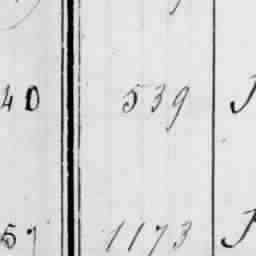 40 539
57 1173